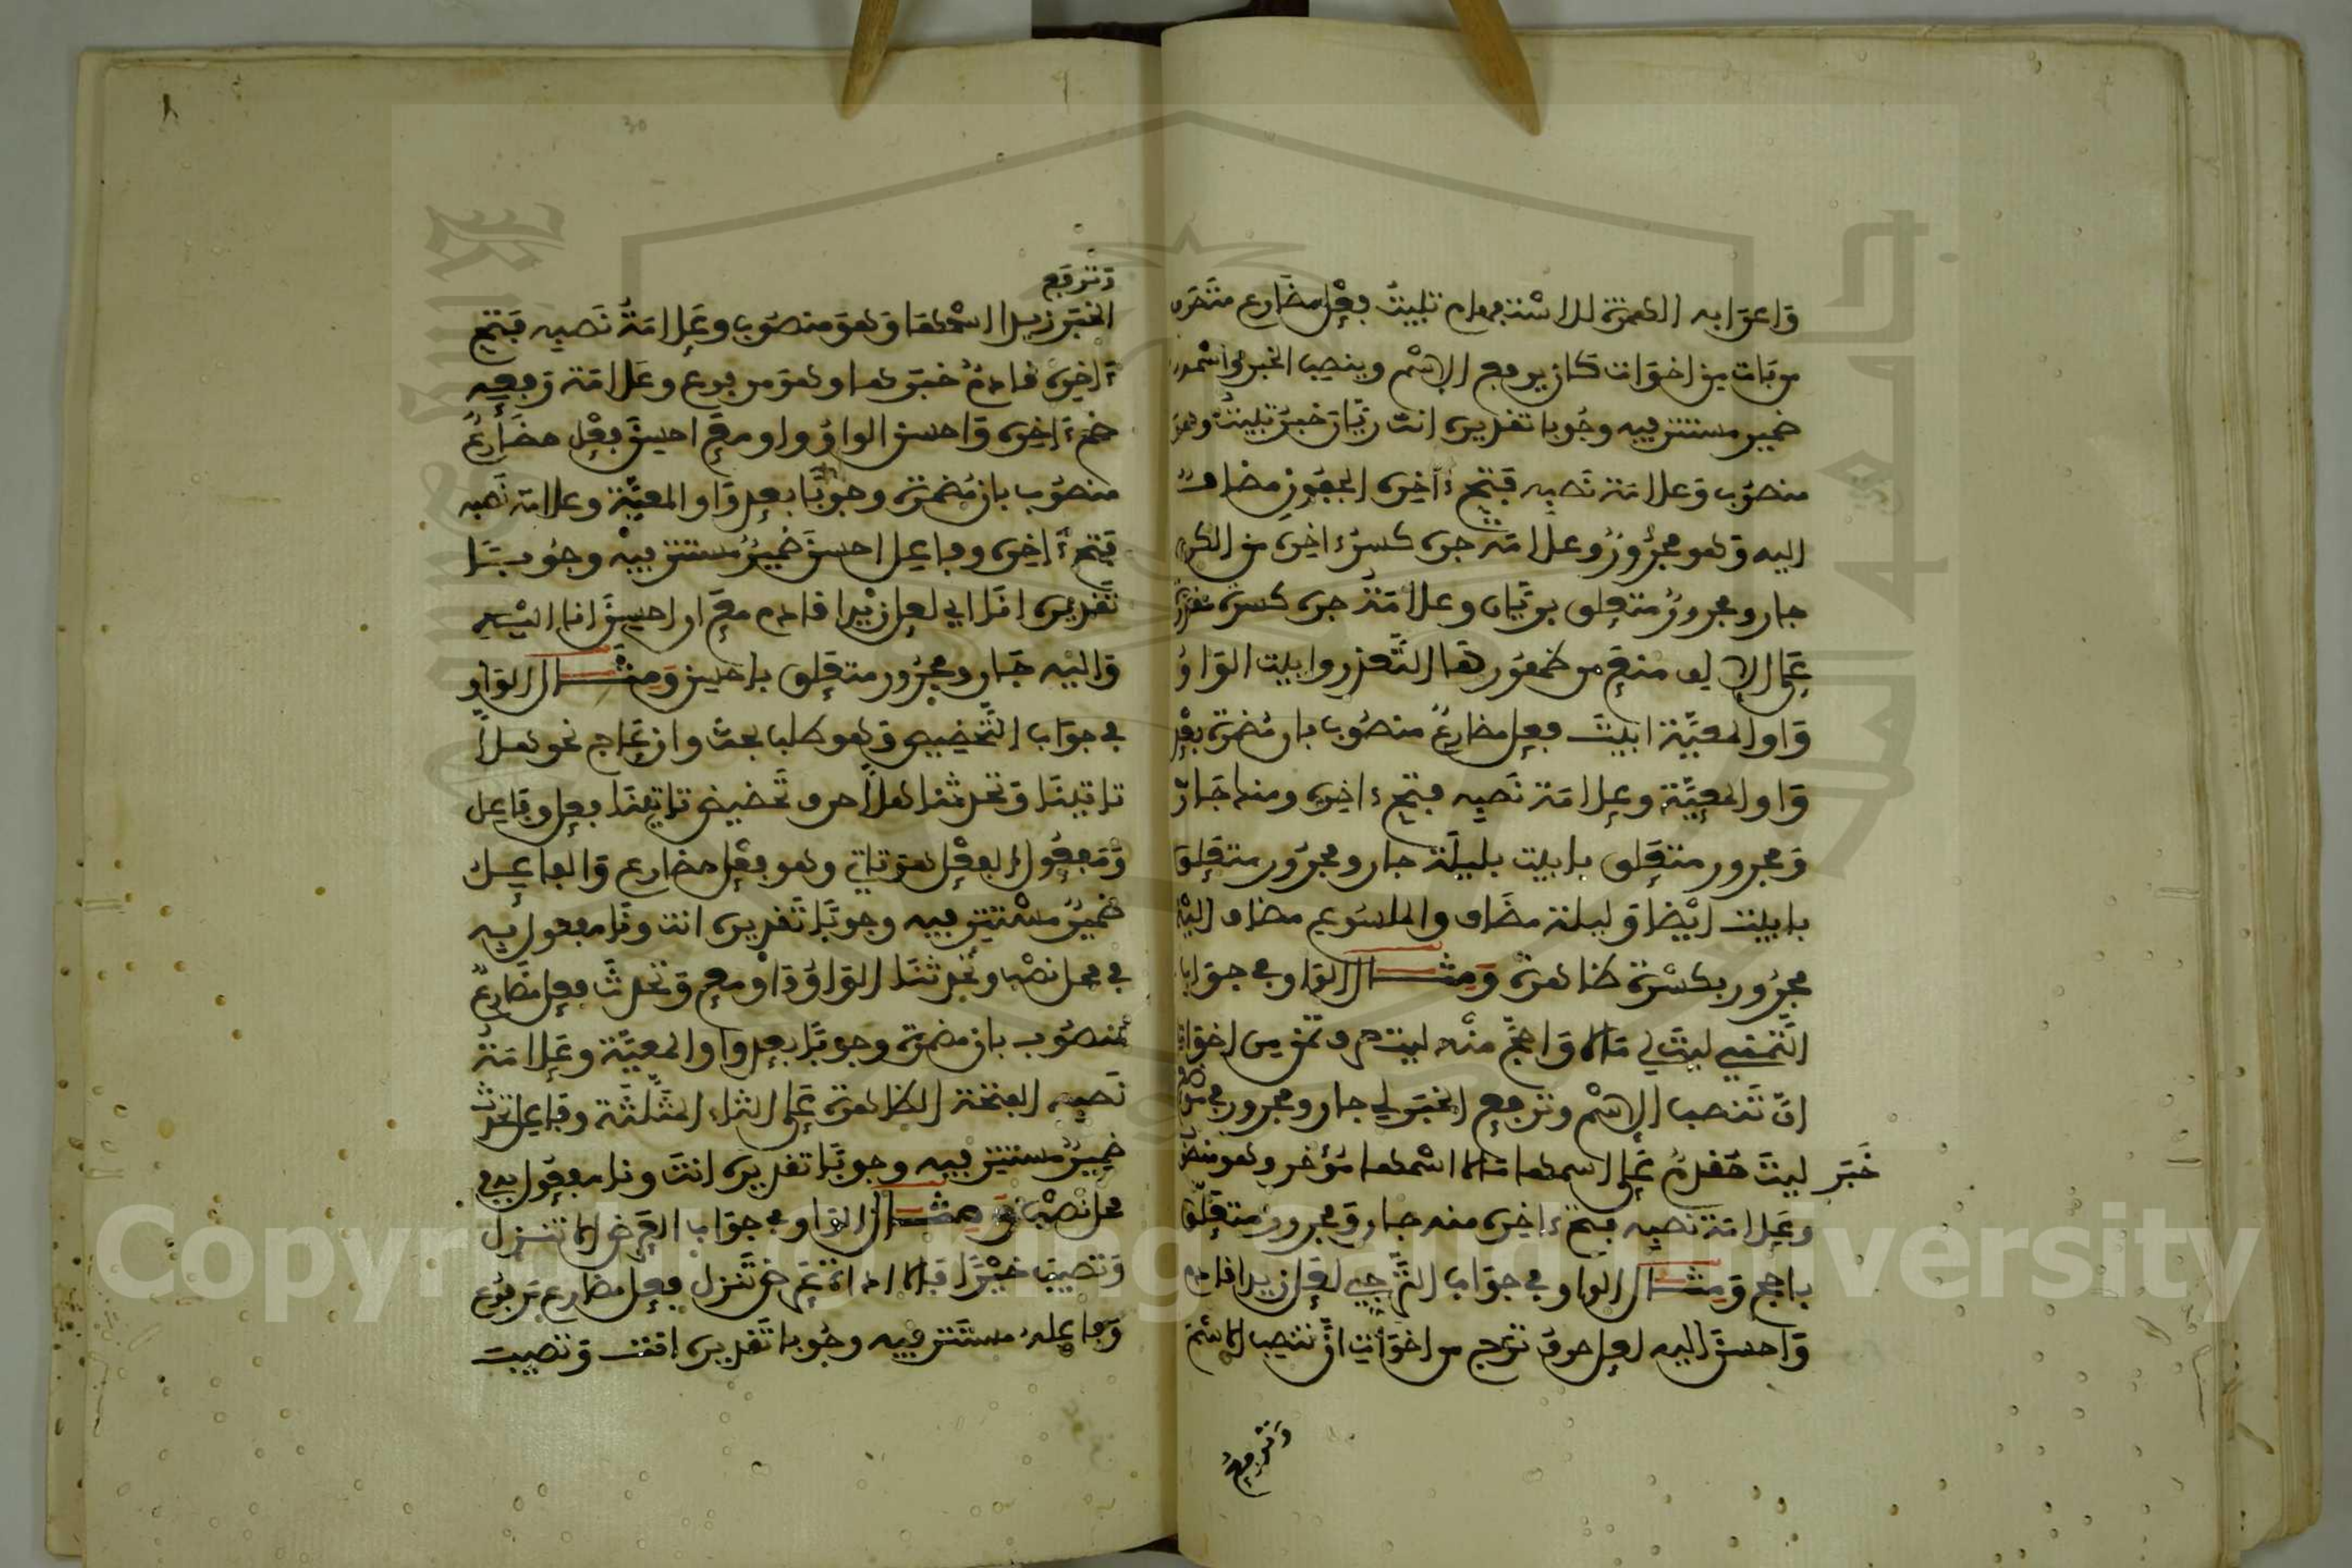 واعرابه الهمزة للاستفهام تبيت فعل مضارع متصرف
من بات من اخوات كان يرفع الاسم وينصب الخبر واسمه
ضمير مستتر فيه وجوبا تقديره انت ريان خبر تبيت وهو
منصوب وعلامة نصبه فتح ءاخره الجفون مضاف
اليه وهو مجرور وعلامة جره كسر ءاخره من الكرى
جار ومجرور متعلق بريان وعلامة جره كسرة مقدرة
على الالف منع من ظهورها التعذر وابيت الواو
واو المعية ابيت فعل مضارع منصوب بان مضمرة بعد
واو المعية وعلامة نصبه فتح ءاخره ومنك جار
ومجرور متعلق بابيت بليلة جار ومجرور متعلق
بابيت ايضا وليلة مضاف والملسوع مضاف اليه
مجرور بكسرة ظاهرة ومثال الواو في جواب
التمني ليت لي مالا واحج منه ليت حرف تمن من اخوات
ان تنصب الاسم وترفع الخبر لي جار ومجرور في محل
خبر ليت مقدم على اسمها مالا اسمها مؤخر وهو منصوب
وعلامة نصبه فتح ءاخره منه جار ومجرور متعلق
باحج ومثال الواو في جواب الترجي لعل زيدا قادم
واحسن اليه لعل حرف ترج من اخوات ان تنصب الاسم
وترفع
وترفع
الخبر زيدا اسمها وهو منصوب وعلامة نصبه فتح
ءاخره قادم خبرها وهو مرفوع وعلامة رفعه
ضم ءاخره واحسن الواو واو مع احسن فعل مضارع
منصوب بان مضمرة وجوبا بعد واو المعية وعلامة نصبه
فتح ءاخره وفاعل احسن ضمير مستتر فيه وجوبا
تقديره انا اي لعل زيدا قادم مع ان احسن انا اليه
واليه جار ومجرور متعلق باحسن ومثال الواو
في جواب التحضيض وهو طلب بحث وازعاج نحو هلا
تاتينا وتحدثنا هلا حرف تحضيض تاتينا فعل وفاعل
ومفعول الفعل هو تاتي وهو فعل مضارع والفاعل
ضمير مستتر فيه وجوبا تقديره انت ونا مفعول به
في محل نصب وتحدثنا الواو واو مع وتحدث فعل مضارع
منصوب بان مضمرة وجوبا بعد واو المعية وعلامة
نصبه الفتحة الظاهرة على الثاء المثلثة وفاعل تحدث
ضمير مستتر فيه وجوبا تقديره انت ونا مفعول به في
محل نصب ومثال الواو في جواب العرض الا تنزل
وتصيب خيرا الا اداة عرض تنزل فعل مضارع مرفوع
وفاعله مستتر فيه وجوبا تقديره انت وتصيب
Copyright © King Saud University